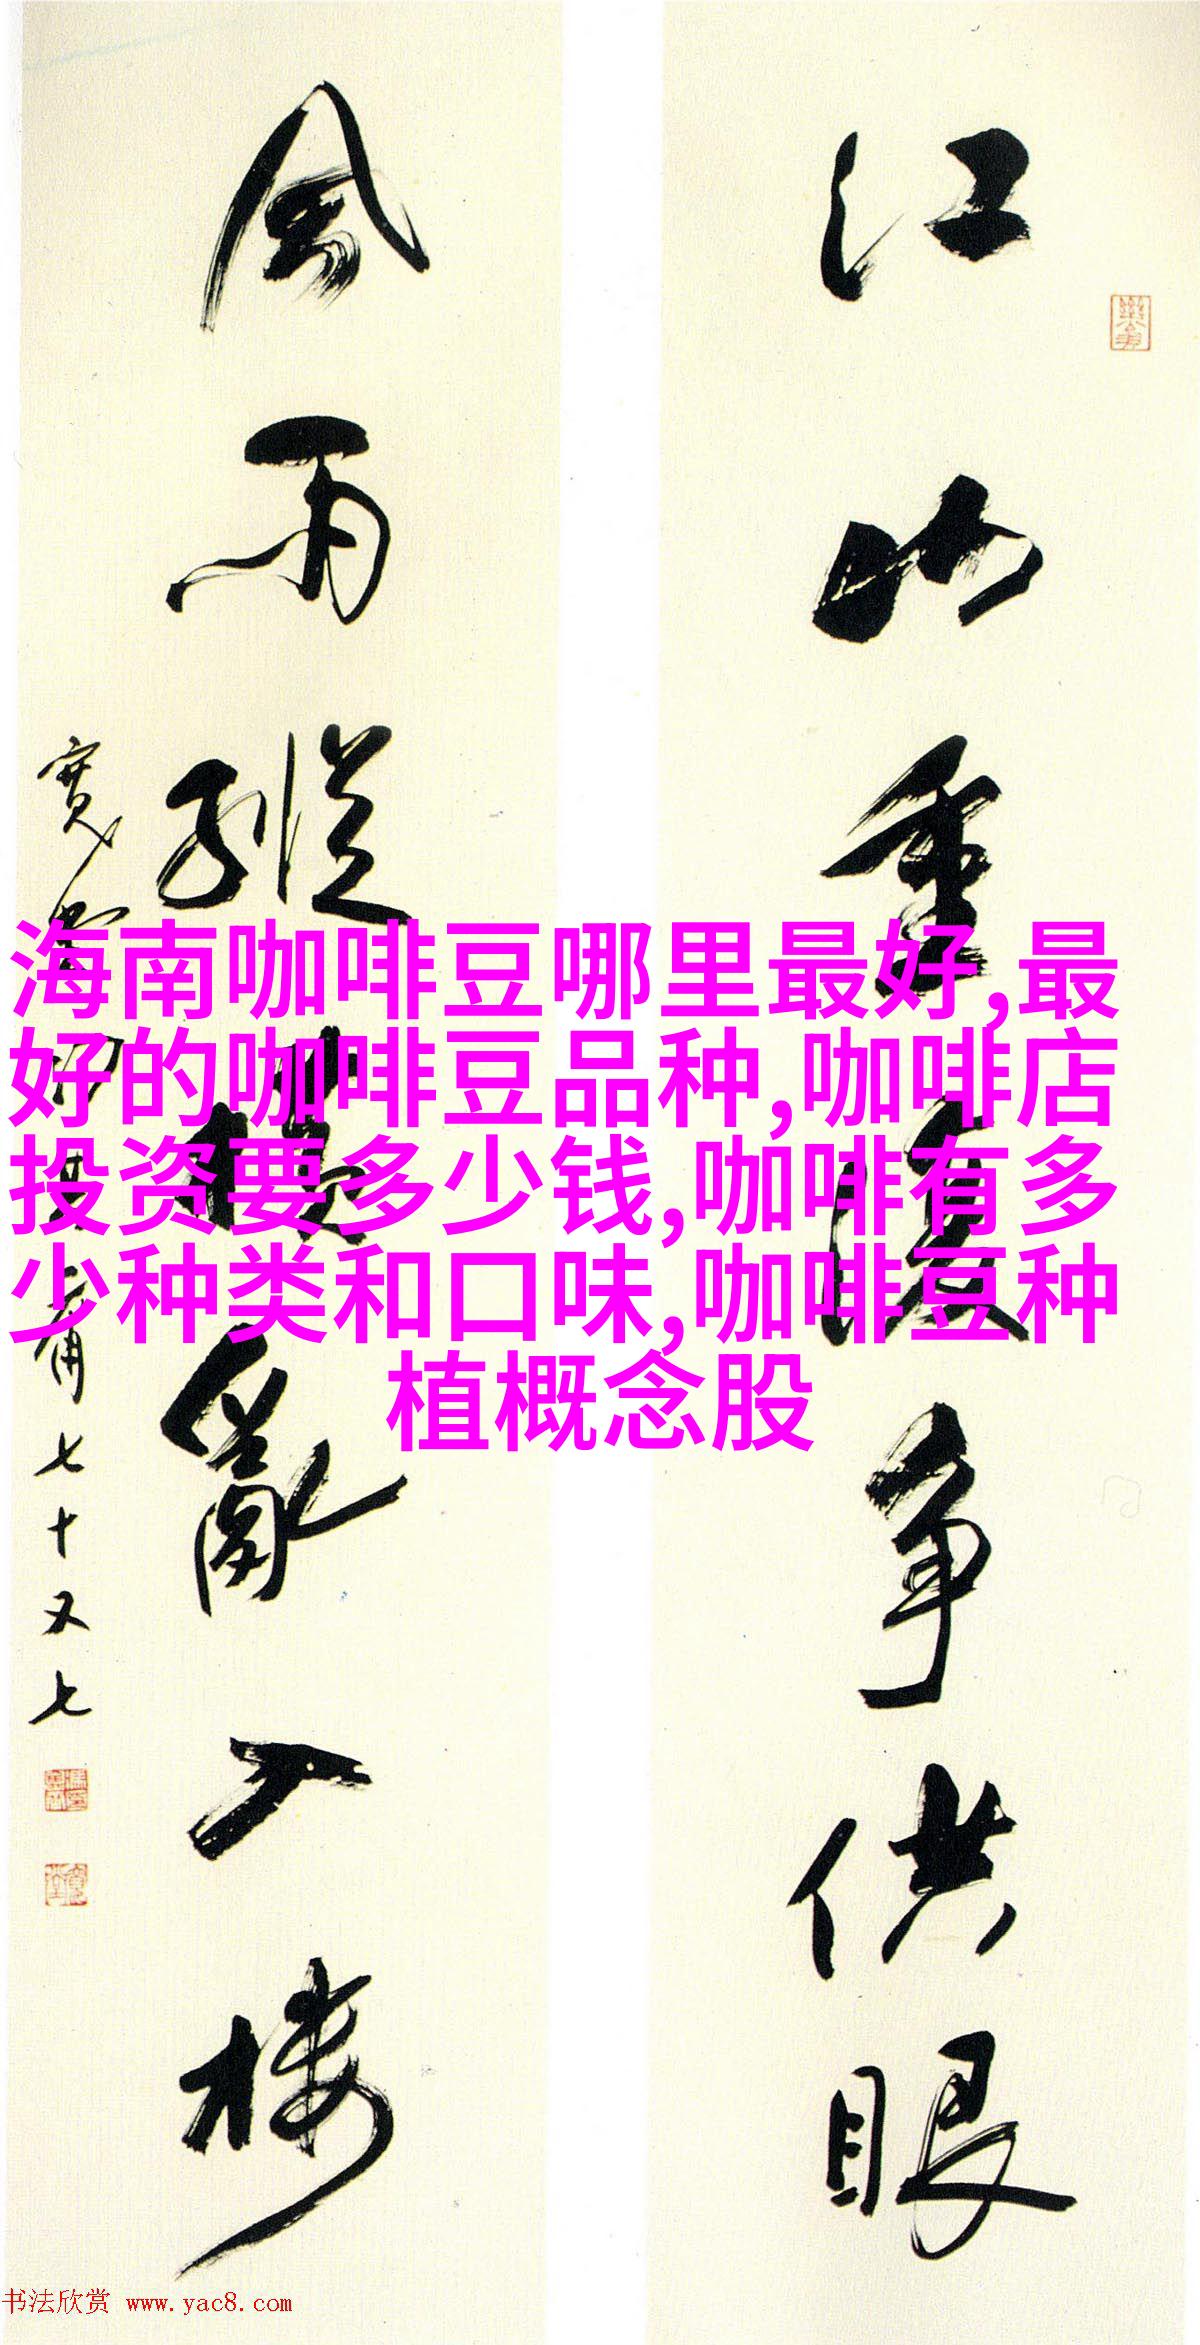 江山重複争供眼
風雨縱横亂入樓
七十又七
海南咖啡豆哪里最好,最
好的咖啡豆品种,咖啡店
投资要多少钱,咖啡有多
少种类和口味,咖啡豆种
植概念股
书法欣赏 www.yac8.com